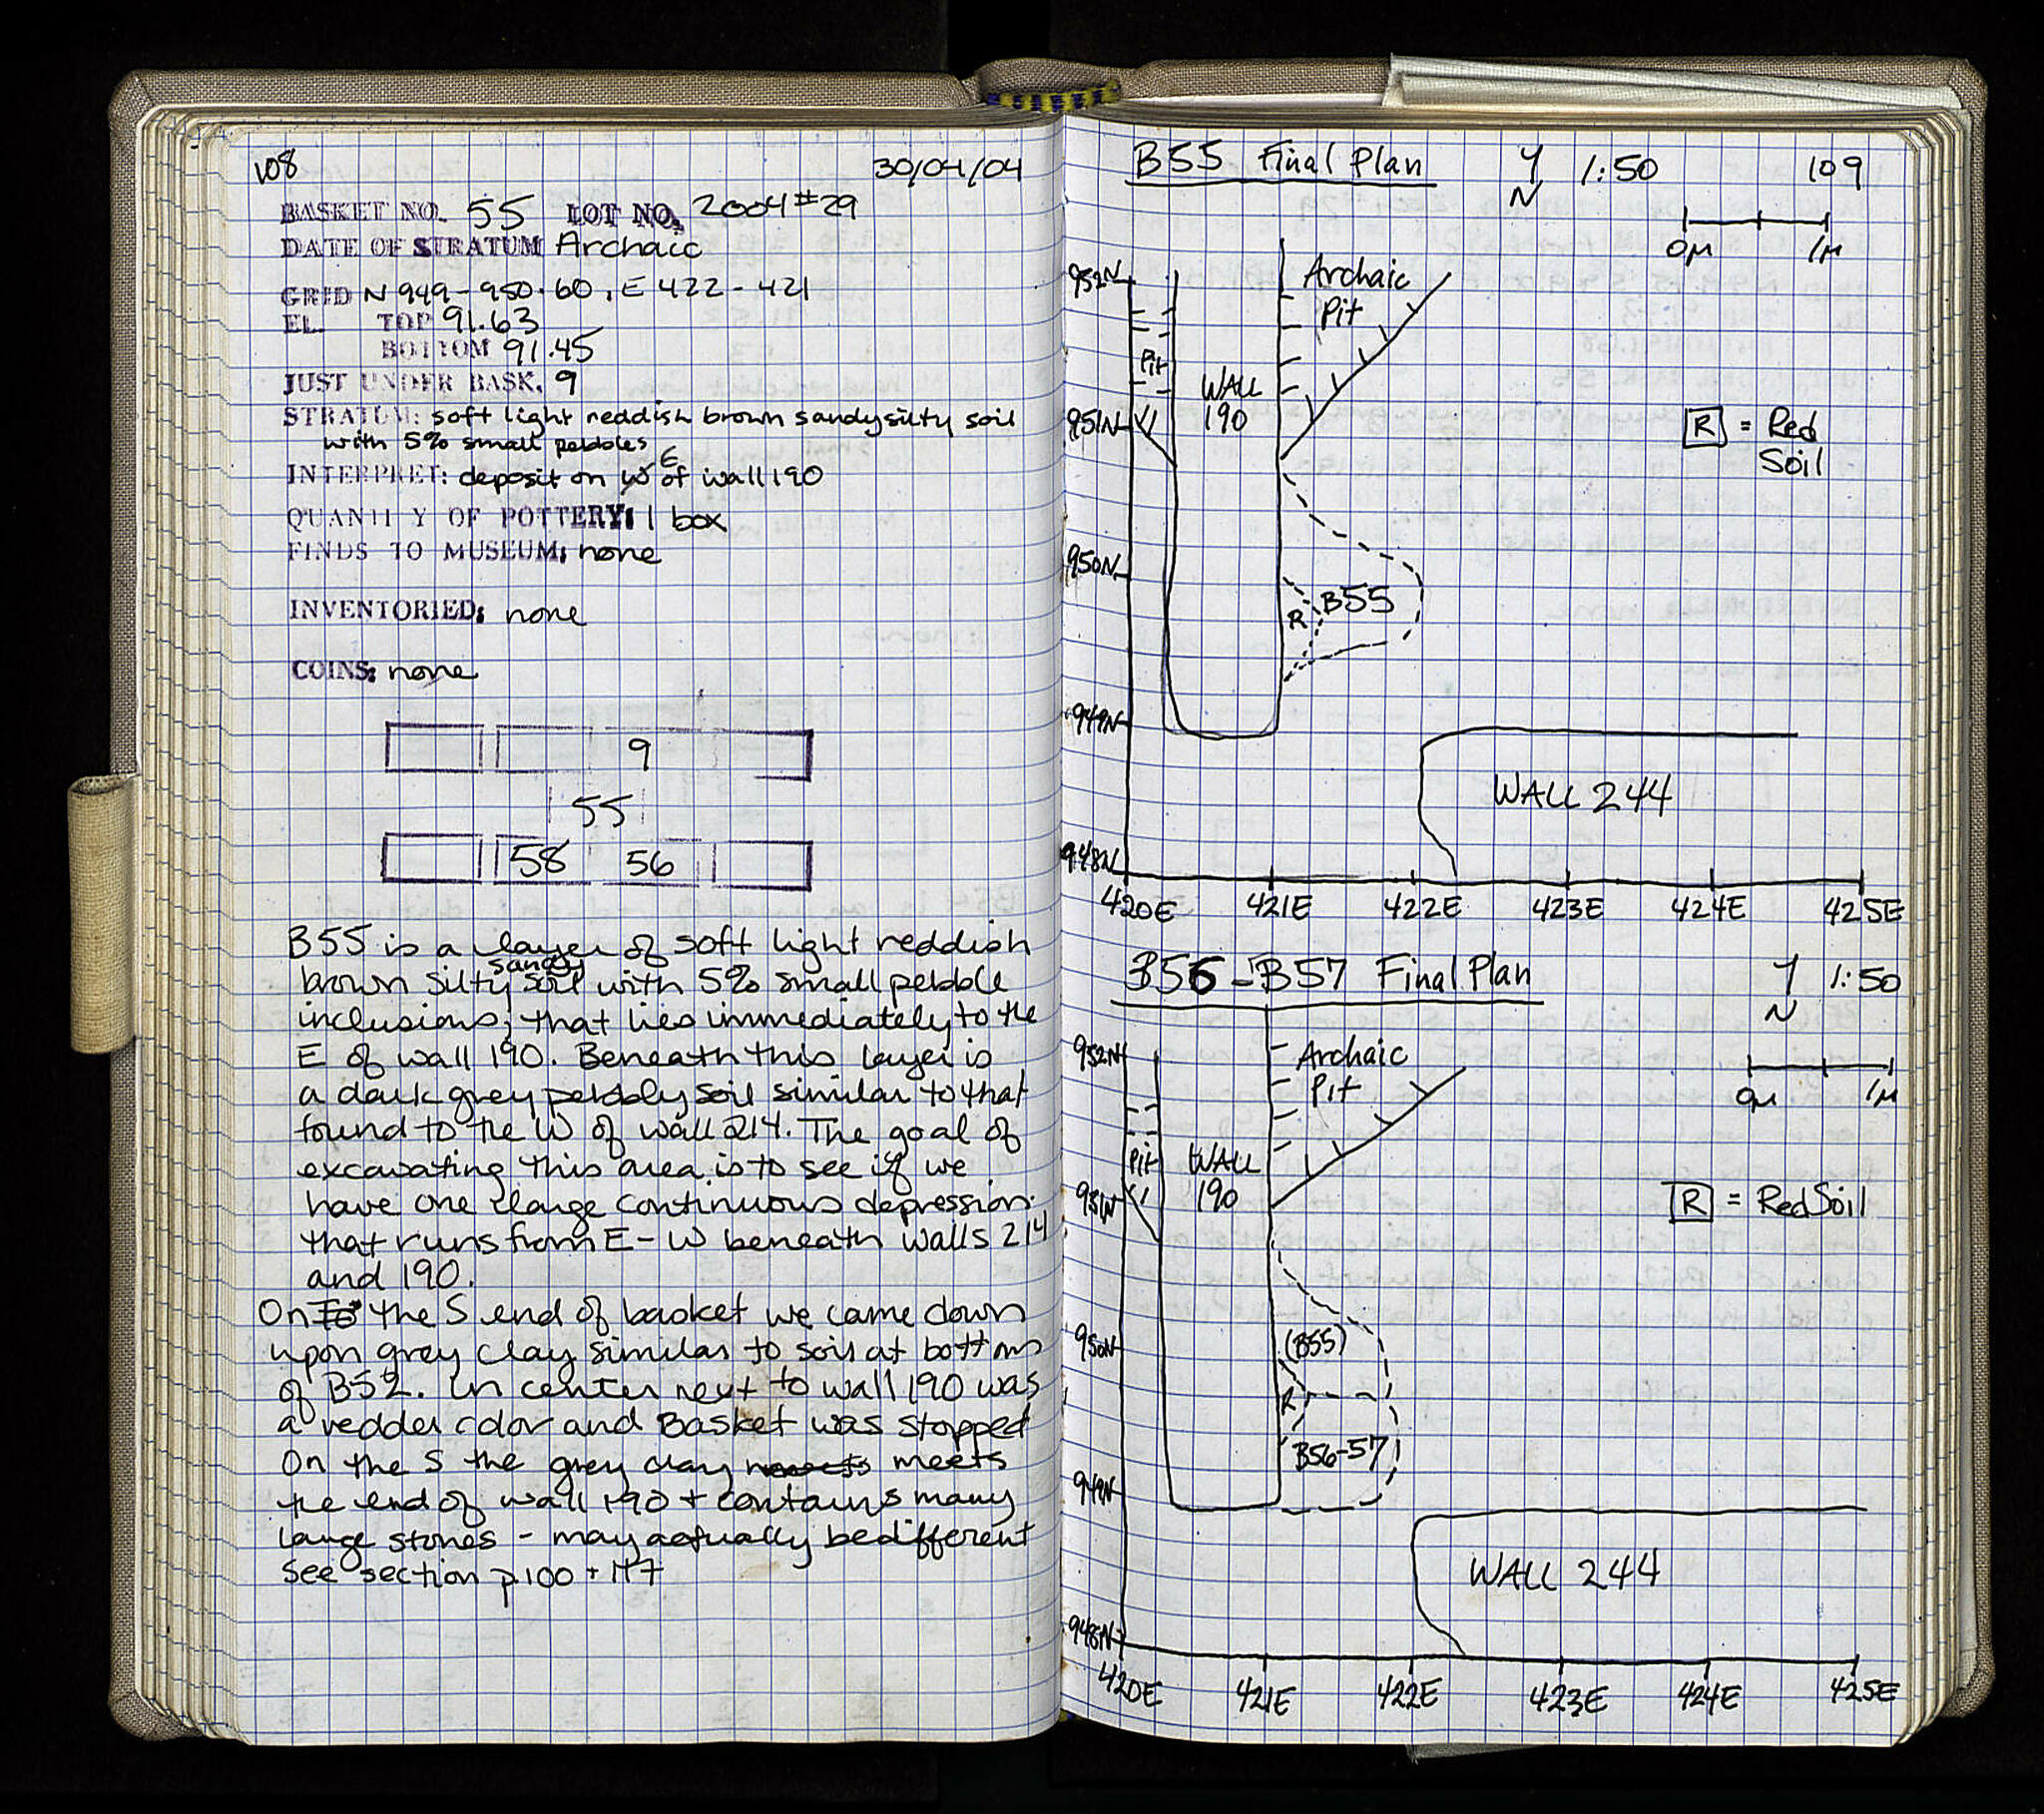 108
30/04/04
BASKET NO. 55 LOT NO. 2004#29
DATE OF STRATUM Archaic
GRID N 949-950.60, E 422-421
EL. TOP 91.63
BOTTOM 91.45
JUST UNDER BASK. 9
STRATUM: soft light reddish brown sandy silty soil
with 5% small pebbles
INTERPRET: deposit on E of wall 190
QUANTITY OF POTTERY: 1 box
FINDS TO MUSEUM: none
INVENTORIED: none
COINS: none
9
55
58 56
B55 is a layer of soft light reddish
brown silty sandy soil with 5% small pebble
inclusions, that lies immediately to the
E of wall 190. Beneath this layer is
a dark grey pebbly soil similar to that
found to the W of wall 214. The goal of
excavating this area is to see if we
have one large continuous depression
that runs from E-W beneath walls 214
and 190.
On the S end of basket we came down
upon grey clay similar to soil at bottom
of B52. In center next to wall 190 was
a redder color and Basket was stopped
On the S the grey clay meets
the end of wall 190 + contains many
large stones - may actually be different
See section p.100 + 117
B55 Final Plan N 1:50 109
0M 1M
952N
Archaic
Pit
Pit
WALL
190
951N
R = Red
Soil
950N
B55
R
949N
WALL 244
948N
420E 421E 422E 423E 424E 425E
B56-B57 Final Plan N 1:50
0M 1M
952N
Archaic
Pit
Pit
WALL
190
951N
R = Red Soil
950N
(B55)
R
B56-57
949N
WALL 244
948N
420E 421E 422E 423E 424E 425E